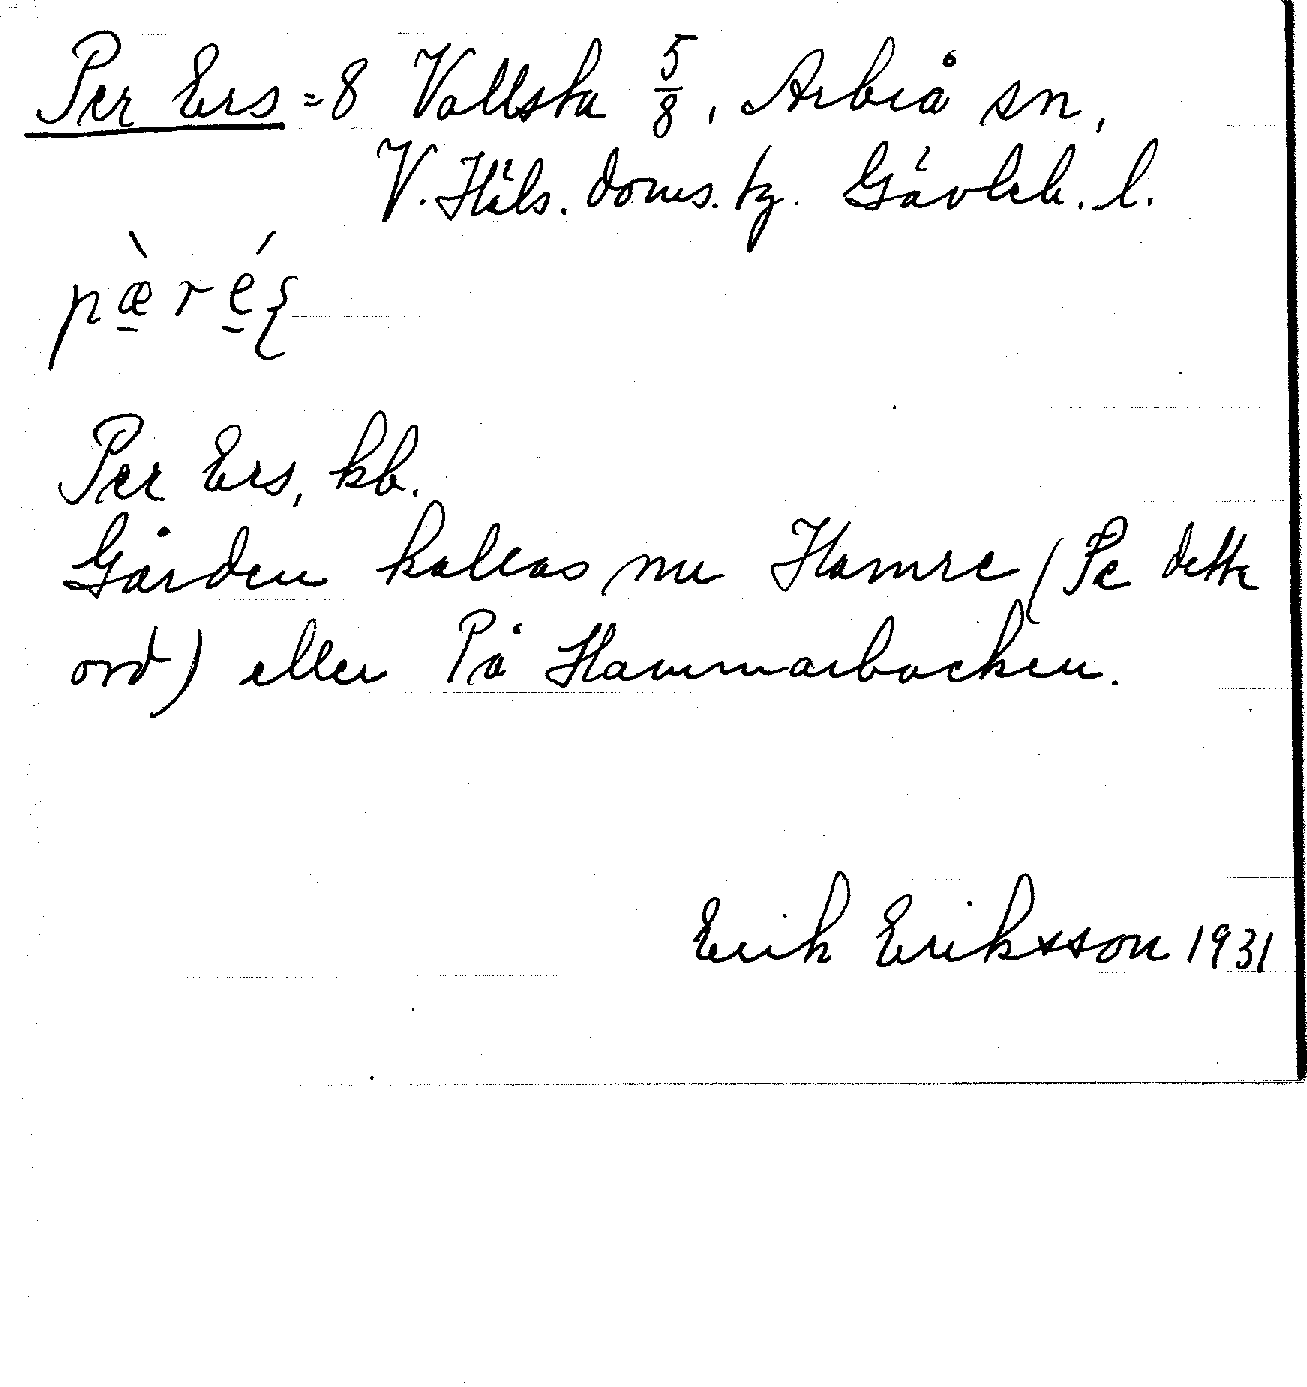 Per Ers = 8 Vallsta 5/8, Arbrå sn,
V. Häls. doms. tg. Gävleb. l.
pæ̠̀ré̠ʂ
Per Ers, kb.
Gården kallas nu Hamre (Se detta
ord) eller På Hammarbacken.
Erik Eriksson 1931